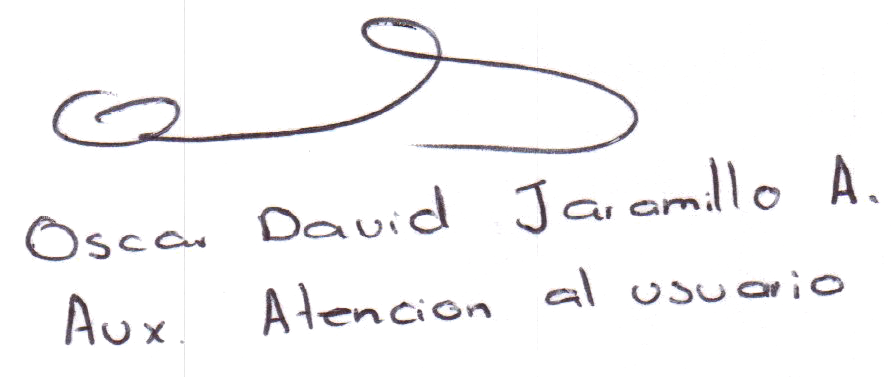 Oscar David Jaramillo A.
Aux. Atencion al usuario